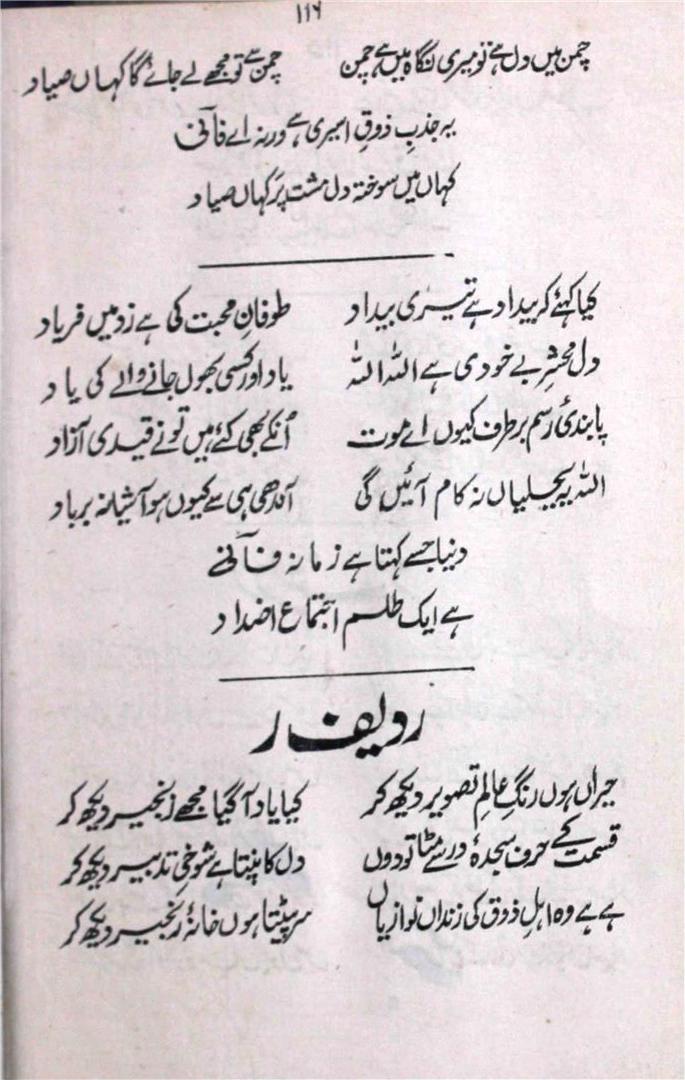 ۱۱۶
چمن میں دل ہے تو میری نگاہ میں ہے چمن    چمن سے تو مجھے لے جائے گا کہاں صیاد
یہ جذبِ ذوقِ اسیری ہے ورنہ اے فانی
کہاں میں سوختہ دل مشتِ پر کہاں صیاد
کیا کہئے کہ بیداد ہے تیری بیداد    طوفانِ محبت کی ہے زد میں فریاد
دل محشرِ بے خودی ہے اللہ اللہ    یاد اور کسی بھول جانے والے کی یاد
پابندیٔ رسم برطرف کیوں اے موت    اُنکے بھی کئے ہیں تو نے قیدی آزاد
اللہ یہ بجلیاں نہ کام آئیں گی    آندھی ہی سے کیوں ہو آشیانہ برباد
دنیا جسے کہتا ہے زمانہ فانی
ہے ایک طلسم اجتماع اضداد
ردیف ر
حیراں ہوں رنگِ عالمِ تصویر دیکھ کر    کیا یاد آگیا مجھے زنجیر دیکھ کر
قسمت کے حرف سجدۂ در سے مٹا تو دوں    دل کانپتا ہے شوخیِ تدبیر دیکھ کر
ہے ہے وہ اہلِ ذوق کی زنداں نوازیاں    سر پیٹتا ہوں خانۂ زنجیر دیکھ کر